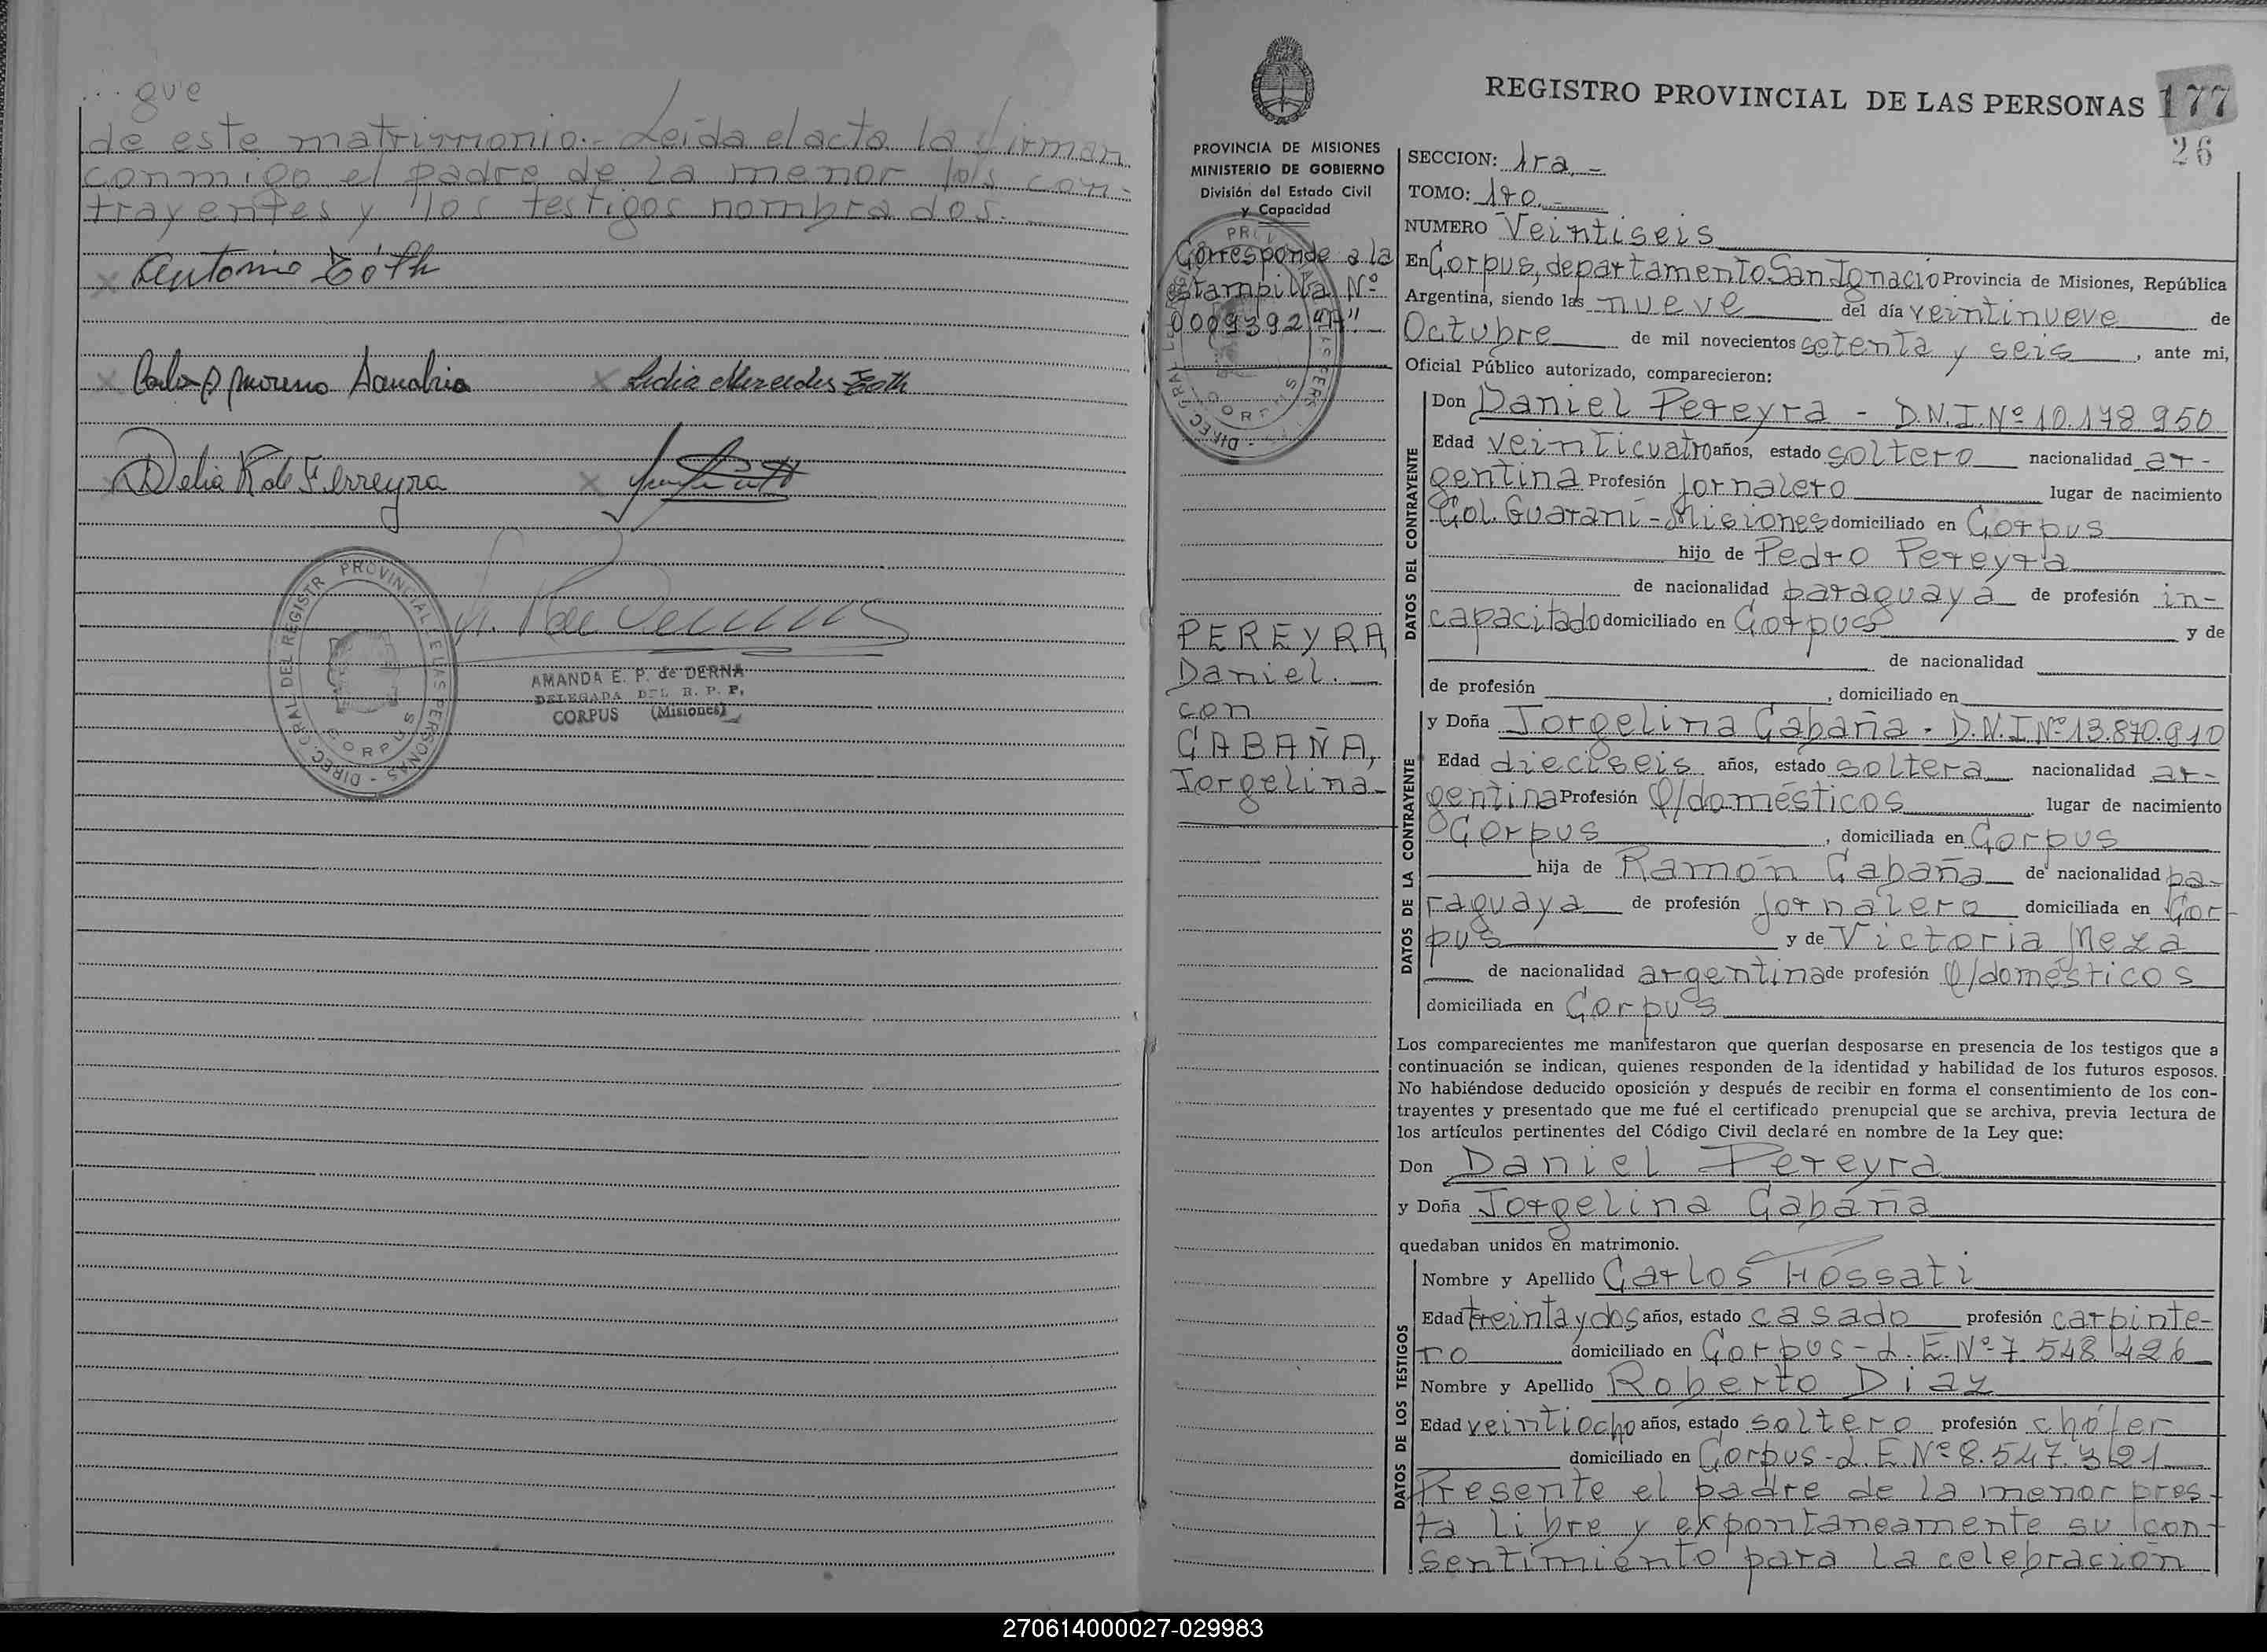 ...gue
de este matrimonio.- Leída el acta la firman
conmigo el padre de la menor los con-
trayentes y los testigos nombrados.
Antonio Tóth
Carlos Moreno Sanabria
Lidia Mercedes Toth
Delia K de Ferreyra
DIREC. GRAL DEL REGISTR PROVINCIAL E LAS PERSONAS - CORPUS
AMANDA E. P. de DERNA
DELEGADA DEL R. P. P.
CORPUS (Misiones)
REGISTRO PROVINCIAL DE LAS PERSONAS 177
26
PROVINCIA DE MISIONES
MINISTERIO DE GOBIERNO
División del Estado Civil
y Capacidad
Corresponde a la
estampilla Nº
0009392 "A"
PEREYRA,
Daniel.
con
CABAÑA,
Jorgelina
SECCION: 1ra.-
TOMO: 1ro.-
NUMERO Veintiseis
En Corpus, departamento San Ignacio Provincia de Misiones, República
Argentina, siendo las nueve del día veintinueve de
Octubre de mil novecientos setenta y seis, ante mi,
Oficial Público autorizado, comparecieron:
DATOS DEL CONTRAYENTE
Don Daniel Pereyra - D.N.I. Nº 10.178.950
Edad veinticuatro años, estado soltero nacionalidad ar-
gentina Profesión jornalero lugar de nacimiento
Col. Guaraní - Misiones domiciliado en Corpus
hijo de Pedro Pereyra
de nacionalidad paraguaya de profesión in-
capacitado domiciliado en Corpus y de
de nacionalidad
de profesión , domiciliado en
DATOS DE LA CONTRAYENTE
y Doña Jorgelina Cabaña - D.N.I Nº 13.870.910
Edad dieciseis años, estado soltera nacionalidad ar-
gentina Profesión Q/domésticos lugar de nacimiento
Corpus , domiciliada en Corpus
hija de Ramón Cabaña de nacionalidad pa-
raguaya de profesión jornalero domiciliada en Cor-
pus y de Victoria Meza
de nacionalidad argentina de profesión Q/domésticos
domiciliada en Corpus
Los comparecientes me manifestaron que querían desposarse en presencia de los testigos que a
continuación se indican, quienes responden de la identidad y habilidad de los futuros esposos.
No habiéndose deducido oposición y después de recibir en forma el consentimiento de los con-
trayentes y presentado que me fué el certificado prenupcial que se archiva, previa lectura de
los artículos pertinentes del Código Civil declaré en nombre de la Ley que:
Don Daniel Pereyra
y Doña Jorgelina Cabaña
quedaban unidos en matrimonio.
DATOS DE LOS TESTIGOS
Nombre y Apellido Carlos Hossati
Edad treinta y dos años, estado casado profesión carpinte-
ro domiciliado en Corpus - L.E. Nº 7.548.426
Nombre y Apellido Roberto Diaz
Edad veintiocho años, estado soltero profesión chófer
domiciliado en Corpus - L.E. Nº 8.547.321
Presente el padre de la menor pres-
ta libre y expontaneamente su con-
sentimiento para la celebración
270614000027-029983